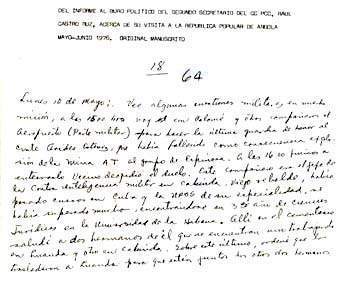 DEL INFORME AL BURO POLITICO DEL SEGUNDO SECRETARIO DEL CC PCC, RAUL
CASTRO RUZ, ACERCA DE SU VISITA A LA REPUBLICA POPULAR DE ANGOLA
MAYO-JUNIO 1976. ORIGINAL MANUSCRITO
18
64
Lunes 10 de Mayo: Veo algunas cuestiones milit. en nuestra
misión, a las 1500 hrs voy con Colomé y otros compañeros al
Aeropuerto (Parte militar) para hacer la última guardia de honor al
había fallecido como consecuencia explo-
sión de la mina AT al grupo de Espinosa. A las 16 10 fuimos a
enterrarlo despedí el duelo. Este compañero era el jefe de
la Contra Inteligencia militar en Cabinda, viejo rebelde, había
pasado cursos en Cuba y la URSS de su especialidad, se
había superado mucho, encontrándose en 3er año de ciencias
Jurídicas en la Universidad de la Habana. Allí en el cementerio
saludé a dos hermanos de él que se encuentran trabajando
en Luanda y otro en Cabinda. Sobre este último, ordené que lo
trasladaran a Luanda para que estén juntos los otros dos hermanos